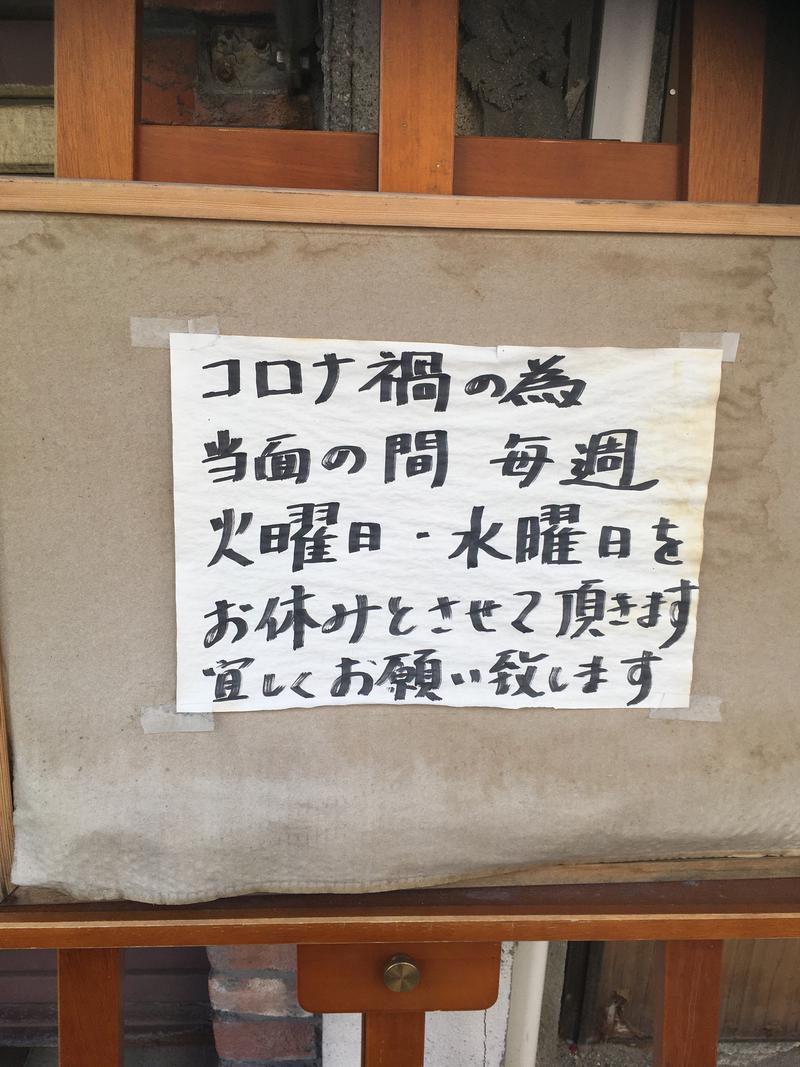 コロナ禍の為
当面の間 毎週
火曜日-水曜日を
お休みとさせて頂きます
宜しくお願い致します